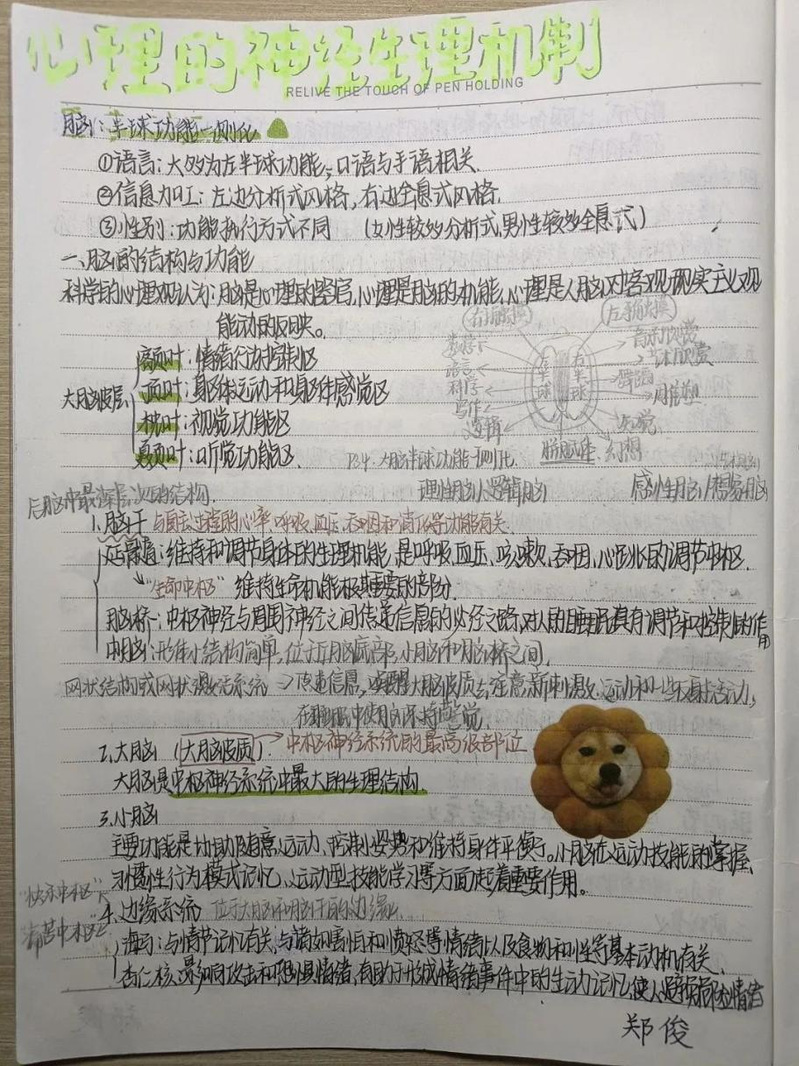 心理的神经生理机制
RELIVE THE TOUCH OF PEN HOLDING
脑：半球功能一侧化
①语言：大多为左半球功能，口语与手语相关.
②信息加工：左边分析式风格，右边全息式风格.
③性别：功能执行方式不同 （女性较多分析式，男性较多全息式）
一、脑的结构与功能
科学的心理观认为：脑是心理的器官，心理是人脑对客观现实主义观
能动的反映。
右手触摸 左手触摸
语言 左半球 右半球 音乐欣赏
科学 舞蹈 雕塑
写作
逻辑 胼胝体 幻想
大脑皮层
额叶：情绪行为控制区
顶叶：身体运动和身体感觉区
枕叶：视觉功能区
颞叶：听觉功能区.
P34. 大脑半球功能一侧化.
理性脑/逻辑脑 感性脑/想象脑
后脑中最深层次的结构.
1.脑干 与自主过程的心率、呼吸、血压、吞咽和消化等功能有关.
延髓：维持和调节身体的生理机能，是呼吸、血压、咳嗽、吞咽、心跳的调节中枢.
↳"生命中枢" 维持生命机能极其重要的部分.
脑桥：中枢神经与周围神经之间传递信息的必经之路，对人的睡眠具有调节和控制的作用
中脑：形体小结构简单，位于脑底部，小脑和脑桥之间.
网状结构或网状激活系统→传递信息，唤醒大脑皮质去注意新刺激、运动和一些反射活动，
在睡眠中使人保持警觉.
2.大脑（大脑皮质）→中枢神经系统的最高级部位
大脑是中枢神经系统中最大的生理结构.
3.小脑
主要功能是协助随意运动、控制姿势和维持身体平衡。小脑在运动技能的掌握、
习惯性行为模式记忆、运动型技能学习等方面起着重要作用。
"快乐中枢"
"痛苦中枢"
4.边缘系统 位于大脑和脑干的边缘.
海马：与情节记忆有关，与诸如害怕和愤怒等情绪以及食物和性等基本动机有关.
杏仁核：影响攻击和恐惧情绪，有助于形成情绪事件中的生动记忆，使人
郑俊